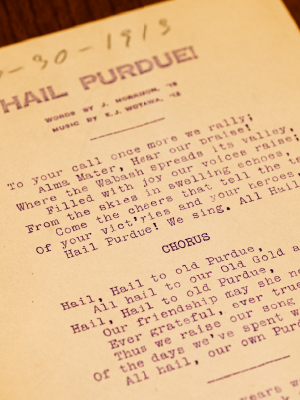 -30-1913
HAIL PURDUE!
WORDS BY J. MORRISON, '15
MUSIC BY E.J. WOTAWA, '12
To your call once more we rally;
Alma Mater, Hear our braise!
Where the Wabash spreads its valley,
Filled with joy our voices raise;
From the skies in swelling echoes,
Come the cheers that tell the
Of your vict'ries and your heroes,
Hail Purdue! We sing. All Hail
CHORUS
Hail, Hail to old Purdue,
All hail to our Old Gold
Hail, Hail to old Purdue,
Our friendship may she
Ever grateful, ever true
Thus we raise our song
Of the days we've spent
All hail, our own